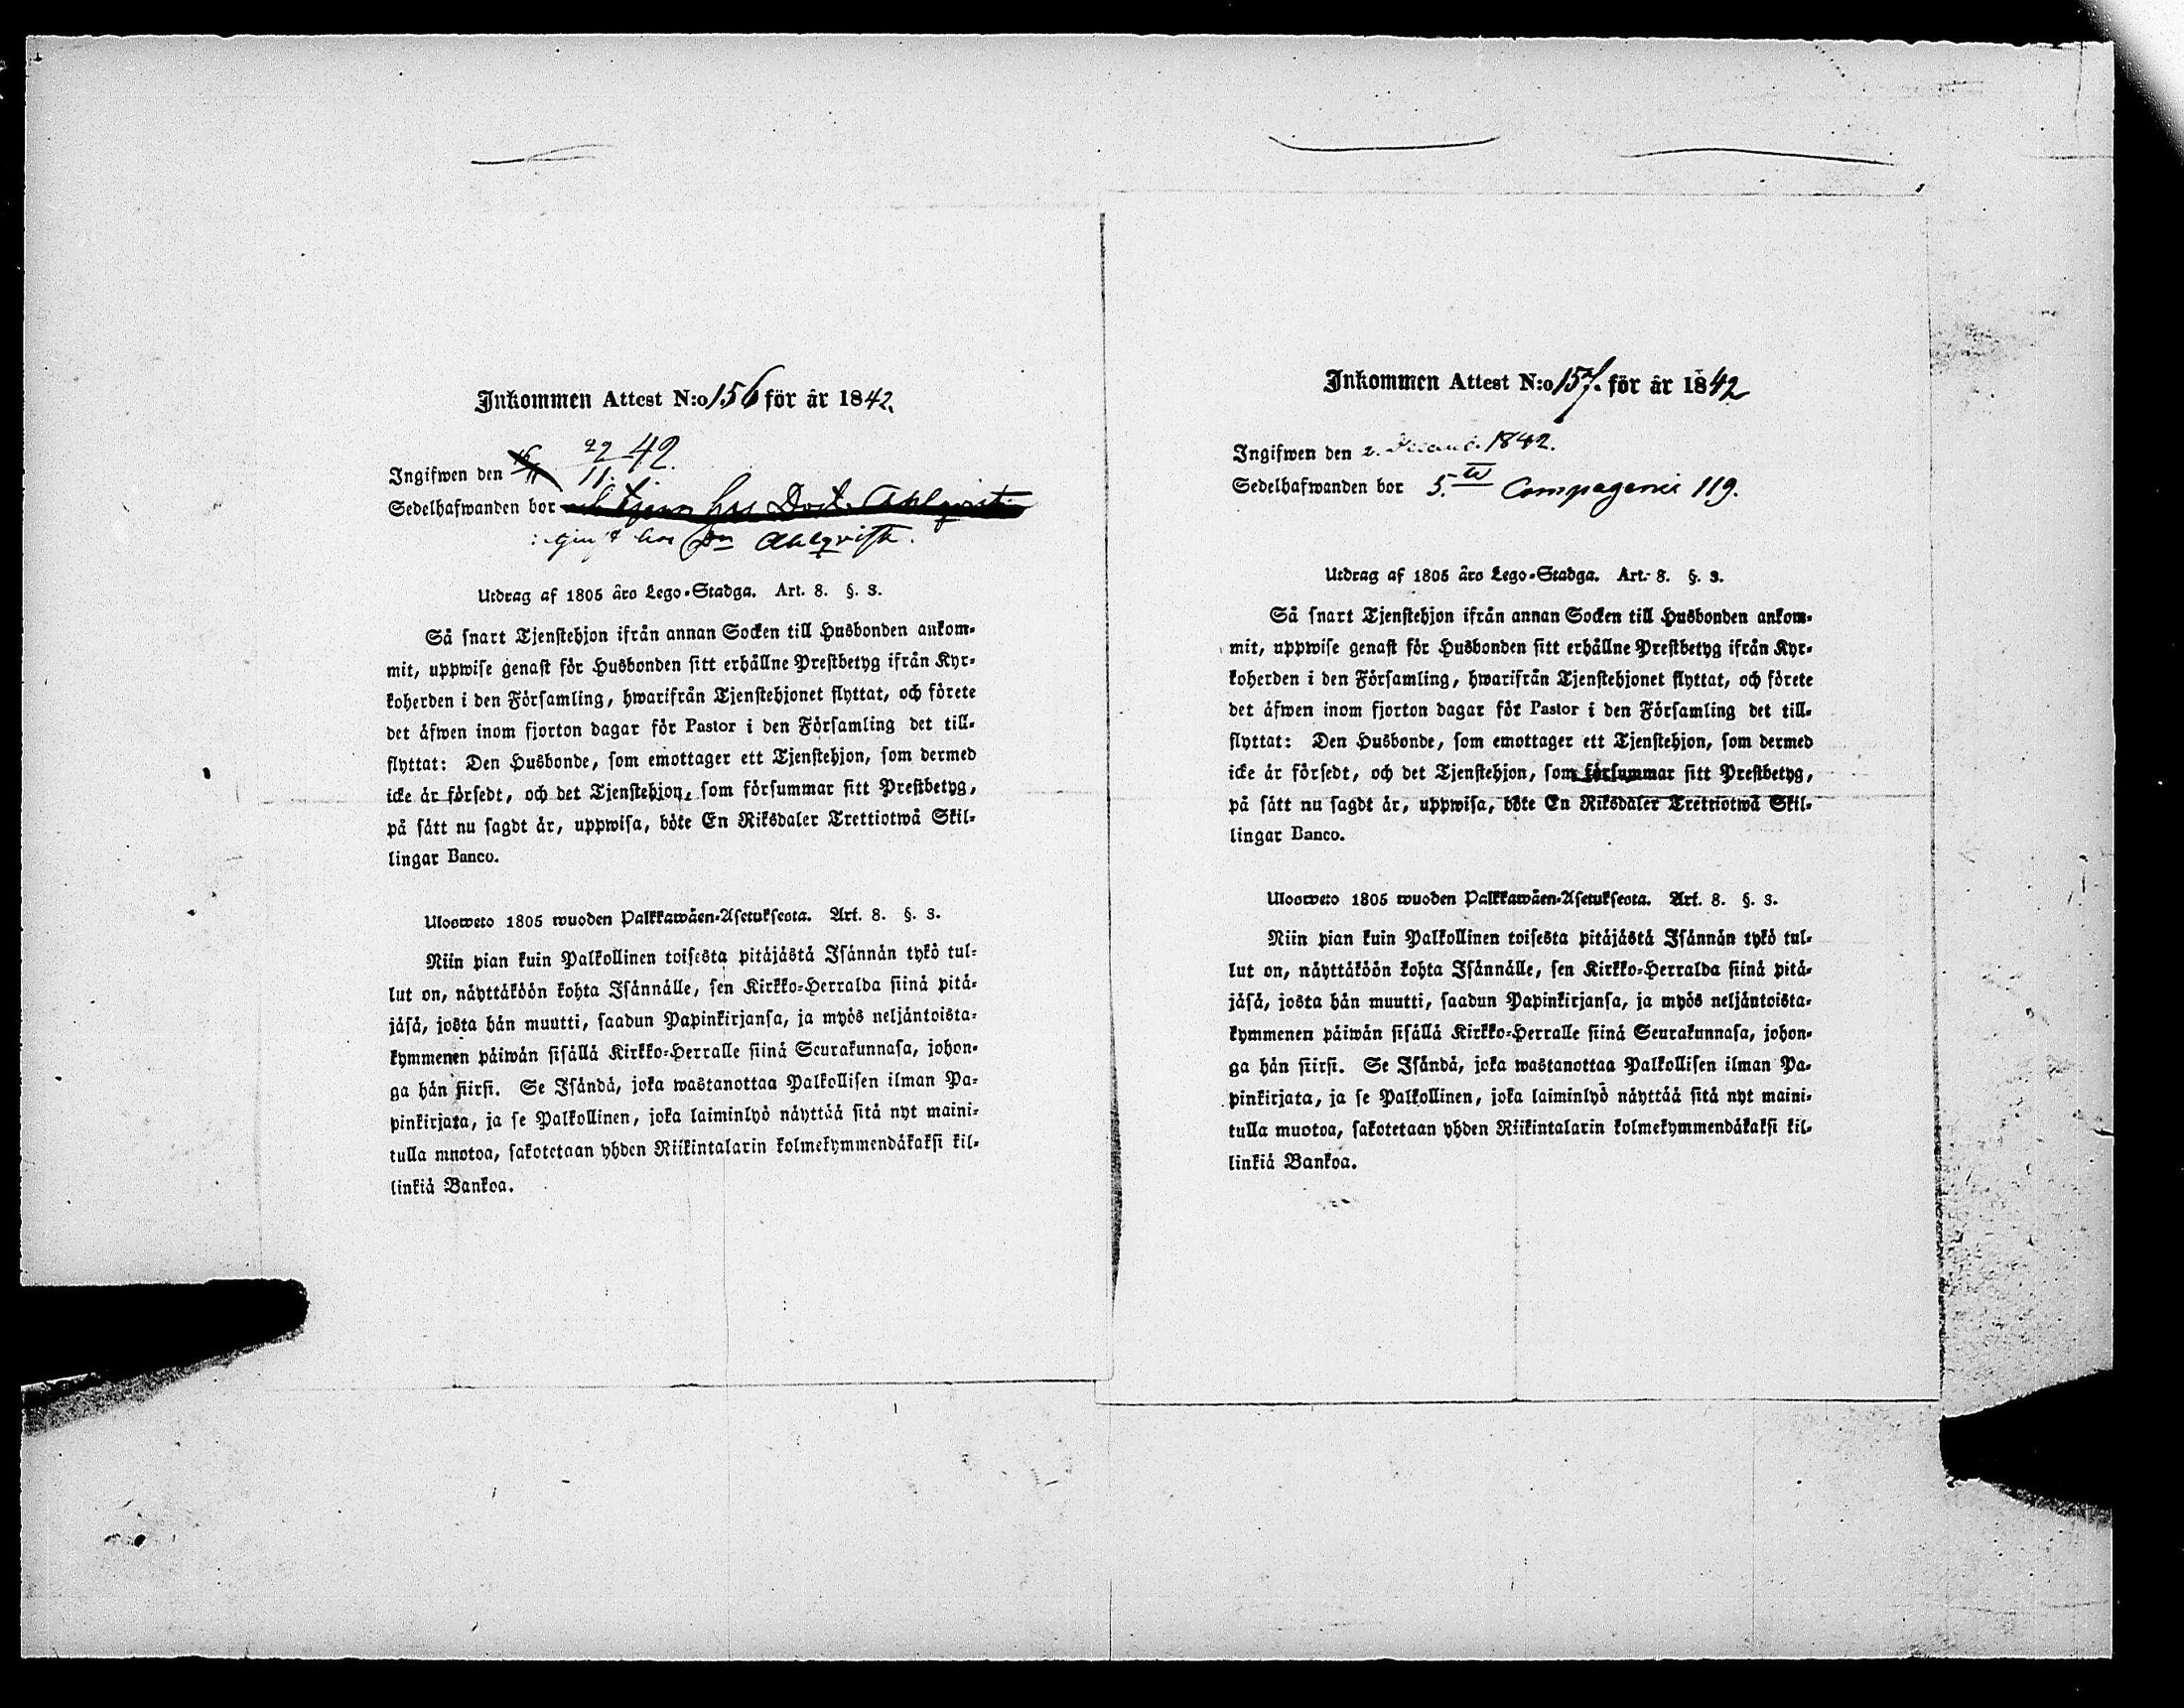 Inkommen Attest N:o 156 för år 1842.
Ingifwen den 22/11 42.
Sedelhafwanden bor och tjenar hos Doct. Ahlqvist
hos Dr Ahlqvist.
Utdrag af 1805 års Lego-Stadga. Art. 8. §. 3.
Så snart Tjenstehjon ifrån annan Socken till Husbonden ankom-
mit, uppwise genast för Husbonden sitt erhållne Prestbetyg ifrån Kyr-
koherden i den Församling, hwarifrån Tjenstehjonet flyttat, och förete
det äfwen inom fjorton dagar för Pastor i den Församling det till-
flyttat: Den Husbonde, som emottager ett Tjenstehjon, som dermed
icke är försedt, och det Tjenstehjon, som försummar sitt Prestbetyg,
på sätt nu sagdt är, uppwisa, böte En Riksdaler Trettiotwå Skil-
lingar Banco.
Ulosweto 1805 wuoden Palkkawäen-Asetuksesta. Art. 8. §. 3.
Niin pian kuin Palkollinen toisesta pitäjästä Isännän tykö tul-
lut on, näyttäköön kohta Isännälle, sen Kirkko-Herralda siinä pitä-
jäsä, josta hän muutti, saadun Papinkirjansa, ja myös neljäntoista-
kymmenen päiwän sisällä Kirkko-Herralle siinä Seurakunnasa, johon-
ga hän siirsi. Se Isändä, joka wastanottaa Palkollisen ilman Pa-
pinkirjata, ja se Palkollinen, joka laiminlyö näyttää sitä nyt maini-
tulla muotoa, sakotetaan yhden Riikintalarin kolmekymmendäkaksi kil-
linkiä Bankoa.
Inkommen Attest N:o 157. för år 1842
Ingifwen den 2. Decemb. 1842.
Sedelhafwanden bor 5.te Compagenie 119.
Utdrag af 1805 års Lego-Stadga. Art. 8. §. 3.
Så snart Tjenstehjon ifrån annan Socken till Husbonden ankom-
mit, uppwise genast för Husbonden sitt erhållne Prestbetyg ifrån Kyr-
koherden i den Församling, hwarifrån Tjenstehjonet flyttat, och förete
det äfwen inom fjorton dagar för Pastor i den Församling det till-
flyttat: Den Husbonde, som emottager ett Tjenstehjon, som dermed
icke är försedt, och det Tjenstehjon, som försummar sitt Prestbetyg,
på sätt nu sagdt är, uppwisa, böte En Riksdaler Trettiotwå Skil-
lingar Banco.
Ulosweto 1805 wuoden Palkkawäen-Asetuksesta. Art. 8. §. 3.
Niin pian kuin Palkollinen toisesta pitäjästä Isännän tykö tul-
lut on, näyttäköön kohta Isännälle, sen Kirkko-Herralda siinä pitä-
jäsä, josta hän muutti, saadun Papinkirjansa, ja myös neljäntoista-
kymmenen päiwän sisällä Kirkko-Herralle siinä Seurakunnasa, johon-
ga hän siirsi. Se Isändä, joka wastanottaa Palkollisen ilman Pa-
pinkirjata, ja se Palkollinen, joka laiminlyö näyttää sitä nyt maini-
tulla muotoa, sakotetaan yhden Riikintalarin kolmekymmendäkaksi kil-
linkiä Bankoa.